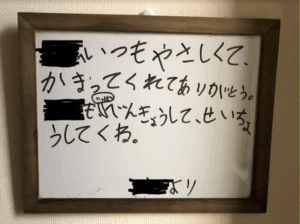 いつもやさしくて、
かまってくれてありがとう。
もべんきょうして、せいちょ
うしてくね。
より